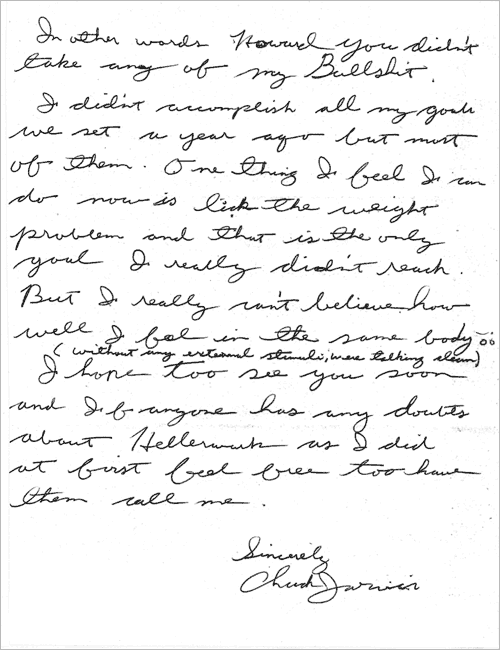 In other words Howard you didn't
take any of my Bullshit.
I didn't accomplish all my goals
we set a year ago but most
of them. One thing I feel I can
do now is lick the weight
problem and that is the only
goal I really didn't reach.
But I really can't believe how
well I feel in the same body
(without any external stimuli, were talking clean)
I hope too see you soon
and If anyone has any doubts
about Hellerwork as I did
at first feel free too have
them call me.
Sincerely
Chuck